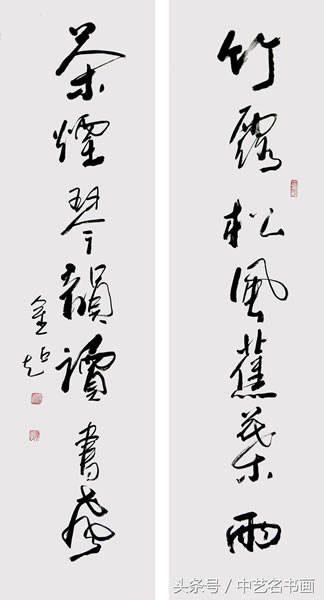 竹露松風蕉葉雨
茶煙琴韻讀書聲
金
头条号 / 中艺名书画